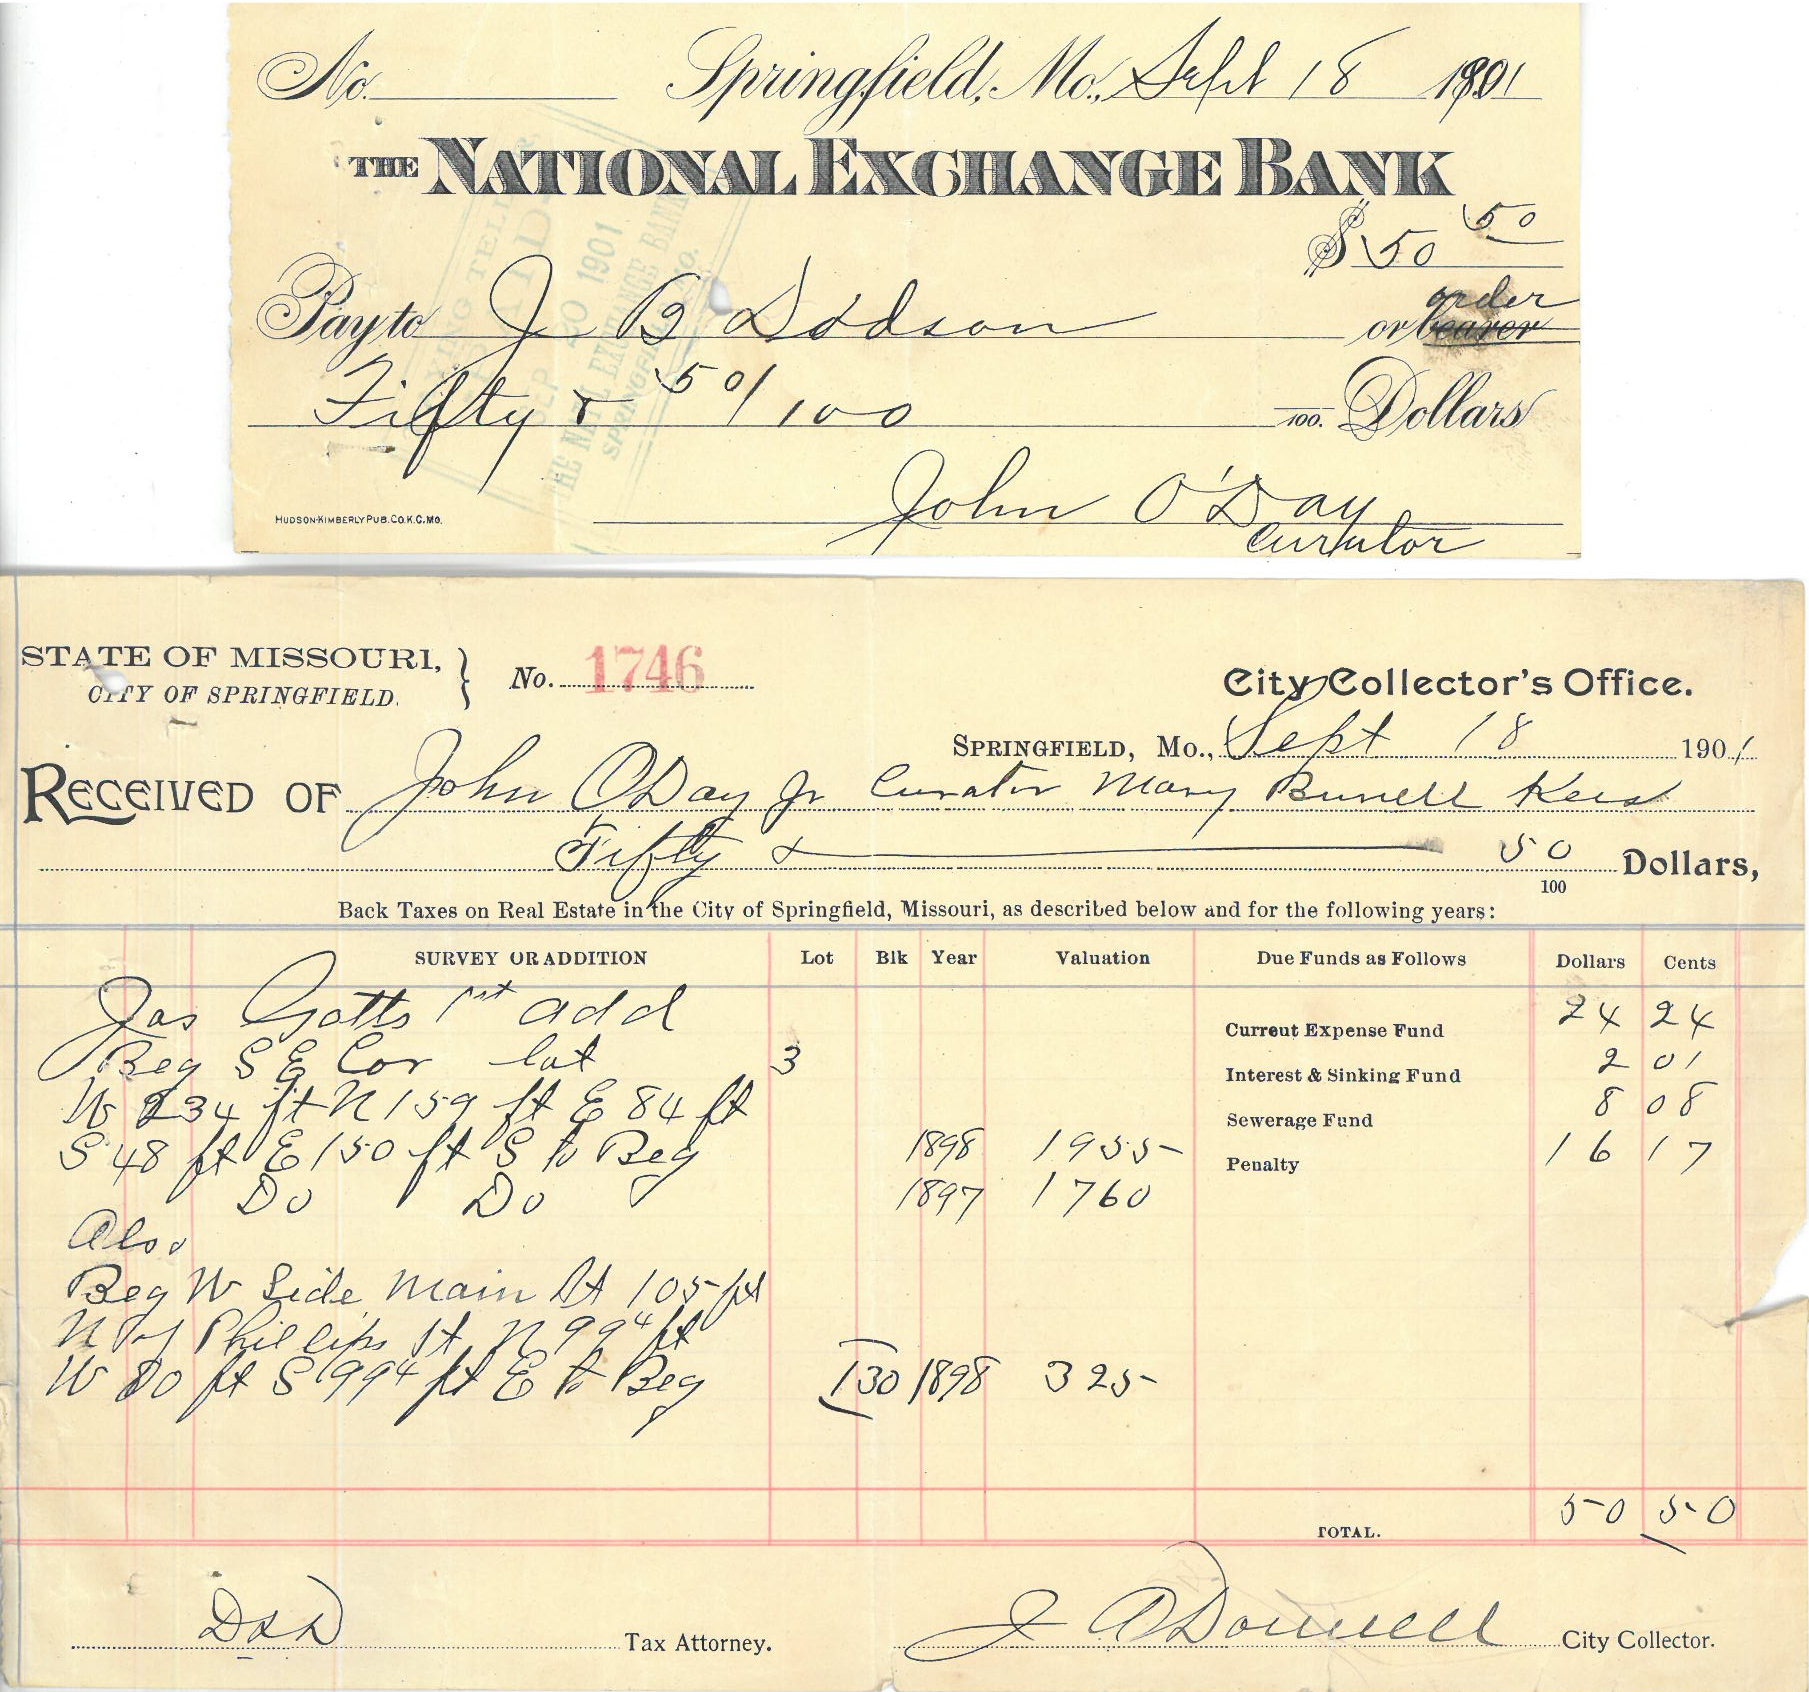 No. Springfield, Mo., Sept 18 1901
THE NATIONAL EXCHANGE BANK
$50 50
Pay to J B Dodson or bearer order
Fifty & 50/100 100. Dollars
John O'Day
Curator
HUDSON-KIMBERLY PUB. CO. K.C. MO.
PAYING TELLER
PAID
SEP 20 1901
THE NATL EXCHANGE BANK
SPRINGFIELD, MO.
STATE OF MISSOURI, } No. 1746
CITY OF SPRINGFIELD.
City Collector's Office.
SPRINGFIELD, Mo., Sept 18 1901
RECEIVED OF John O'Day Jr Curator Mary Burrell
Fifty & 50/100 Dollars,
Back Taxes on Real Estate in the City of Springfield, Missouri, as described below and for the following years:
SURVEY OR ADDITION Lot Blk Year Valuation Due Funds as Follows Dollars Cents
Jas Gotts 1st add Current Expense Fund 24 24
Beg S E Cor lot 3 Interest & Sinking Fund 2 01
W 234 ft N 159 ft E 84 ft Sewerage Fund 8 08
S 48 ft E 150 ft S to Beg 1898 1955 Penalty 16 17
Do Do 1897 1760
Also
Beg W Side Main St 105 ft
N of Phillips St N 99 4 ft
W 80 ft S 99 4 ft E to Beg 130 1898 325
TOTAL. 50 50
D&D Tax Attorney. J O'Donnell City Collector.